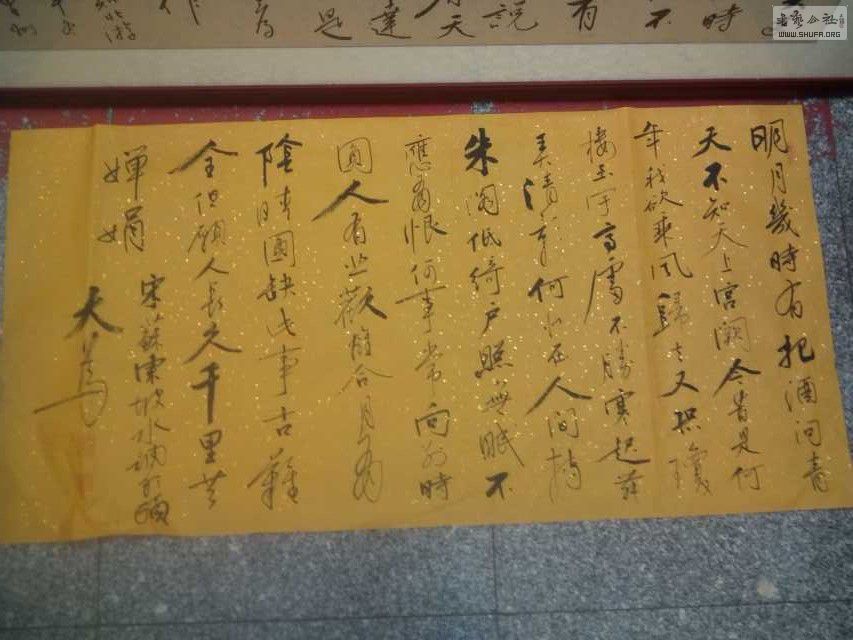 書艺公社
WWW.SHUFA.ORG
時
不
有
説
天
達
是
明月幾時有把酒问青
天不知天上宫阙今昔是何
年我欲乘风歸去又恐瓊
樓玉宇高處不勝寒起舞
弄清影何似在人间轉
朱阁低綺户照無眠不
應有恨何事常向别時
圓人有悲歡離合月有
陰晴圓缺此事古難
全但願人長久千里共
嬋娟
宋蘇東坡水调